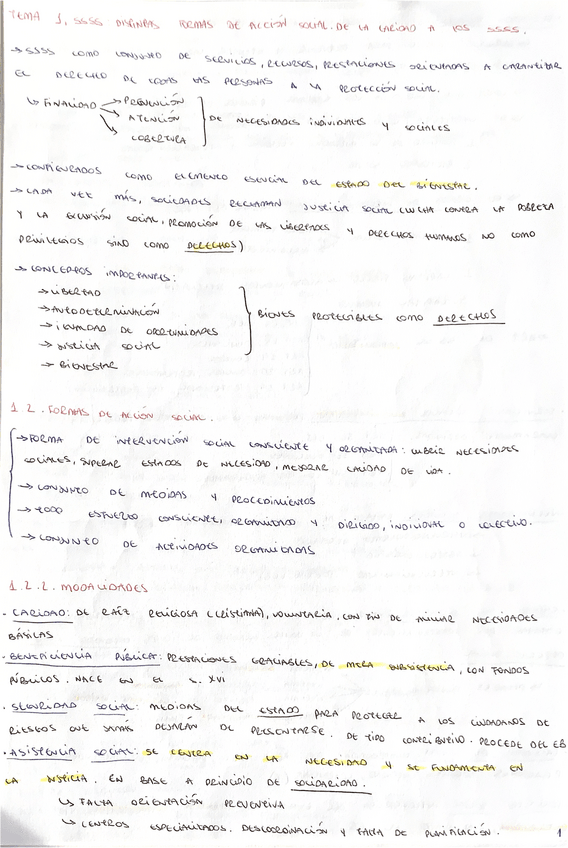 TEMA 1, SSSS DISTINTAS FORMAS DE ACCIÓN SOCIAL. DE LA CARIDAD A LOS SSSS.
→ SSSS COMO CONJUNTO DE SERVICIOS, RECURSOS, PRESTACIONES ORIENTADAS A GARANTIZAR
EL DERECHO DE TODAS LAS PERSONAS A LA PROTECCIÓN SOCIAL.
↳ FINALIDAD → PREVENCIÓN
→ ATENCIÓN
→ COBERTURA
DE NECESIDADES INDIVIDUALES Y SOCIALES
→ CONFIGURADOS COMO ELEMENTO ESENCIAL DEL ESTADO DEL BIENESTAR.
→ CADA VEZ MÁS, SOCIEDADES RECLAMAN JUSTICIA SOCIAL (LUCHA CONTRA LA POBREZA
Y LA EXCLUSIÓN SOCIAL, PROMOCIÓN DE LAS LIBERTADES Y DERECHOS HUMANOS NO COMO
PRIVILEGIOS SINO COMO DERECHOS)
→ CONCEPTOS IMPORTANTES:
→ LIBERTAD
→ AUTODETERMINACIÓN
→ IGUALDAD DE OPORTUNIDADES
→ JUSTICIA SOCIAL
→ BIENESTAR
BIENES PROTEGIBLES COMO DERECHOS
1.2. FORMAS DE ACCIÓN SOCIAL.
→ FORMA DE INTERVENCIÓN SOCIAL CONSCIENTE Y ORGANIZADA: CUBRIR NECESIDADES
SOCIALES, SUPERAR ESTADOS DE NECESIDAD, MEJORAR CALIDAD DE VIDA.
→ CONJUNTO DE MEDIDAS Y PROCEDIMIENTOS
→ TODO ESFUERZO CONSCIENTE, ORGANIZADO Y DIRIGIDO, INDIVIDUAL O COLECTIVO.
→ CONJUNTO DE ACTIVIDADES ORGANIZADAS
1.2.2. MODALIDADES
· CARIDAD: DE RAÍZ RELIGIOSA (CRISTIANA), VOLUNTARIA, CON FIN DE ALIVIAR NECESIDADES
BÁSICAS
· BENEFICIENCIA PÚBLICA: PRESTACIONES GRACIABLES, DE MERA SUBSISTENCIA, CON FONDOS
PÚBLICOS. NACE EN EL S. XVI
· SEGURIDAD SOCIAL: MEDIDAS DEL ESTADO PARA PROTEGER A LOS CIUDADANOS DE
RIESGOS QUE JAMÁS DEJARÁN DE PRESENTARSE. DE TIPO CONTRIBUTIVO. PROCEDE DEL EB
· ASISTENCIA SOCIAL: SE CENTRA EN LA NECESIDAD Y SE FUNDAMENTA EN
LA JUSTICIA. EN BASE A PRINCIPIO DE SOLIDARIDAD.
↳ FALTA ORIENTACIÓN PREVENTIVA
↳ CENTROS ESPECIALIZADOS. DESCOORDINACIÓN Y FALTA DE PLANIFICACIÓN.
1